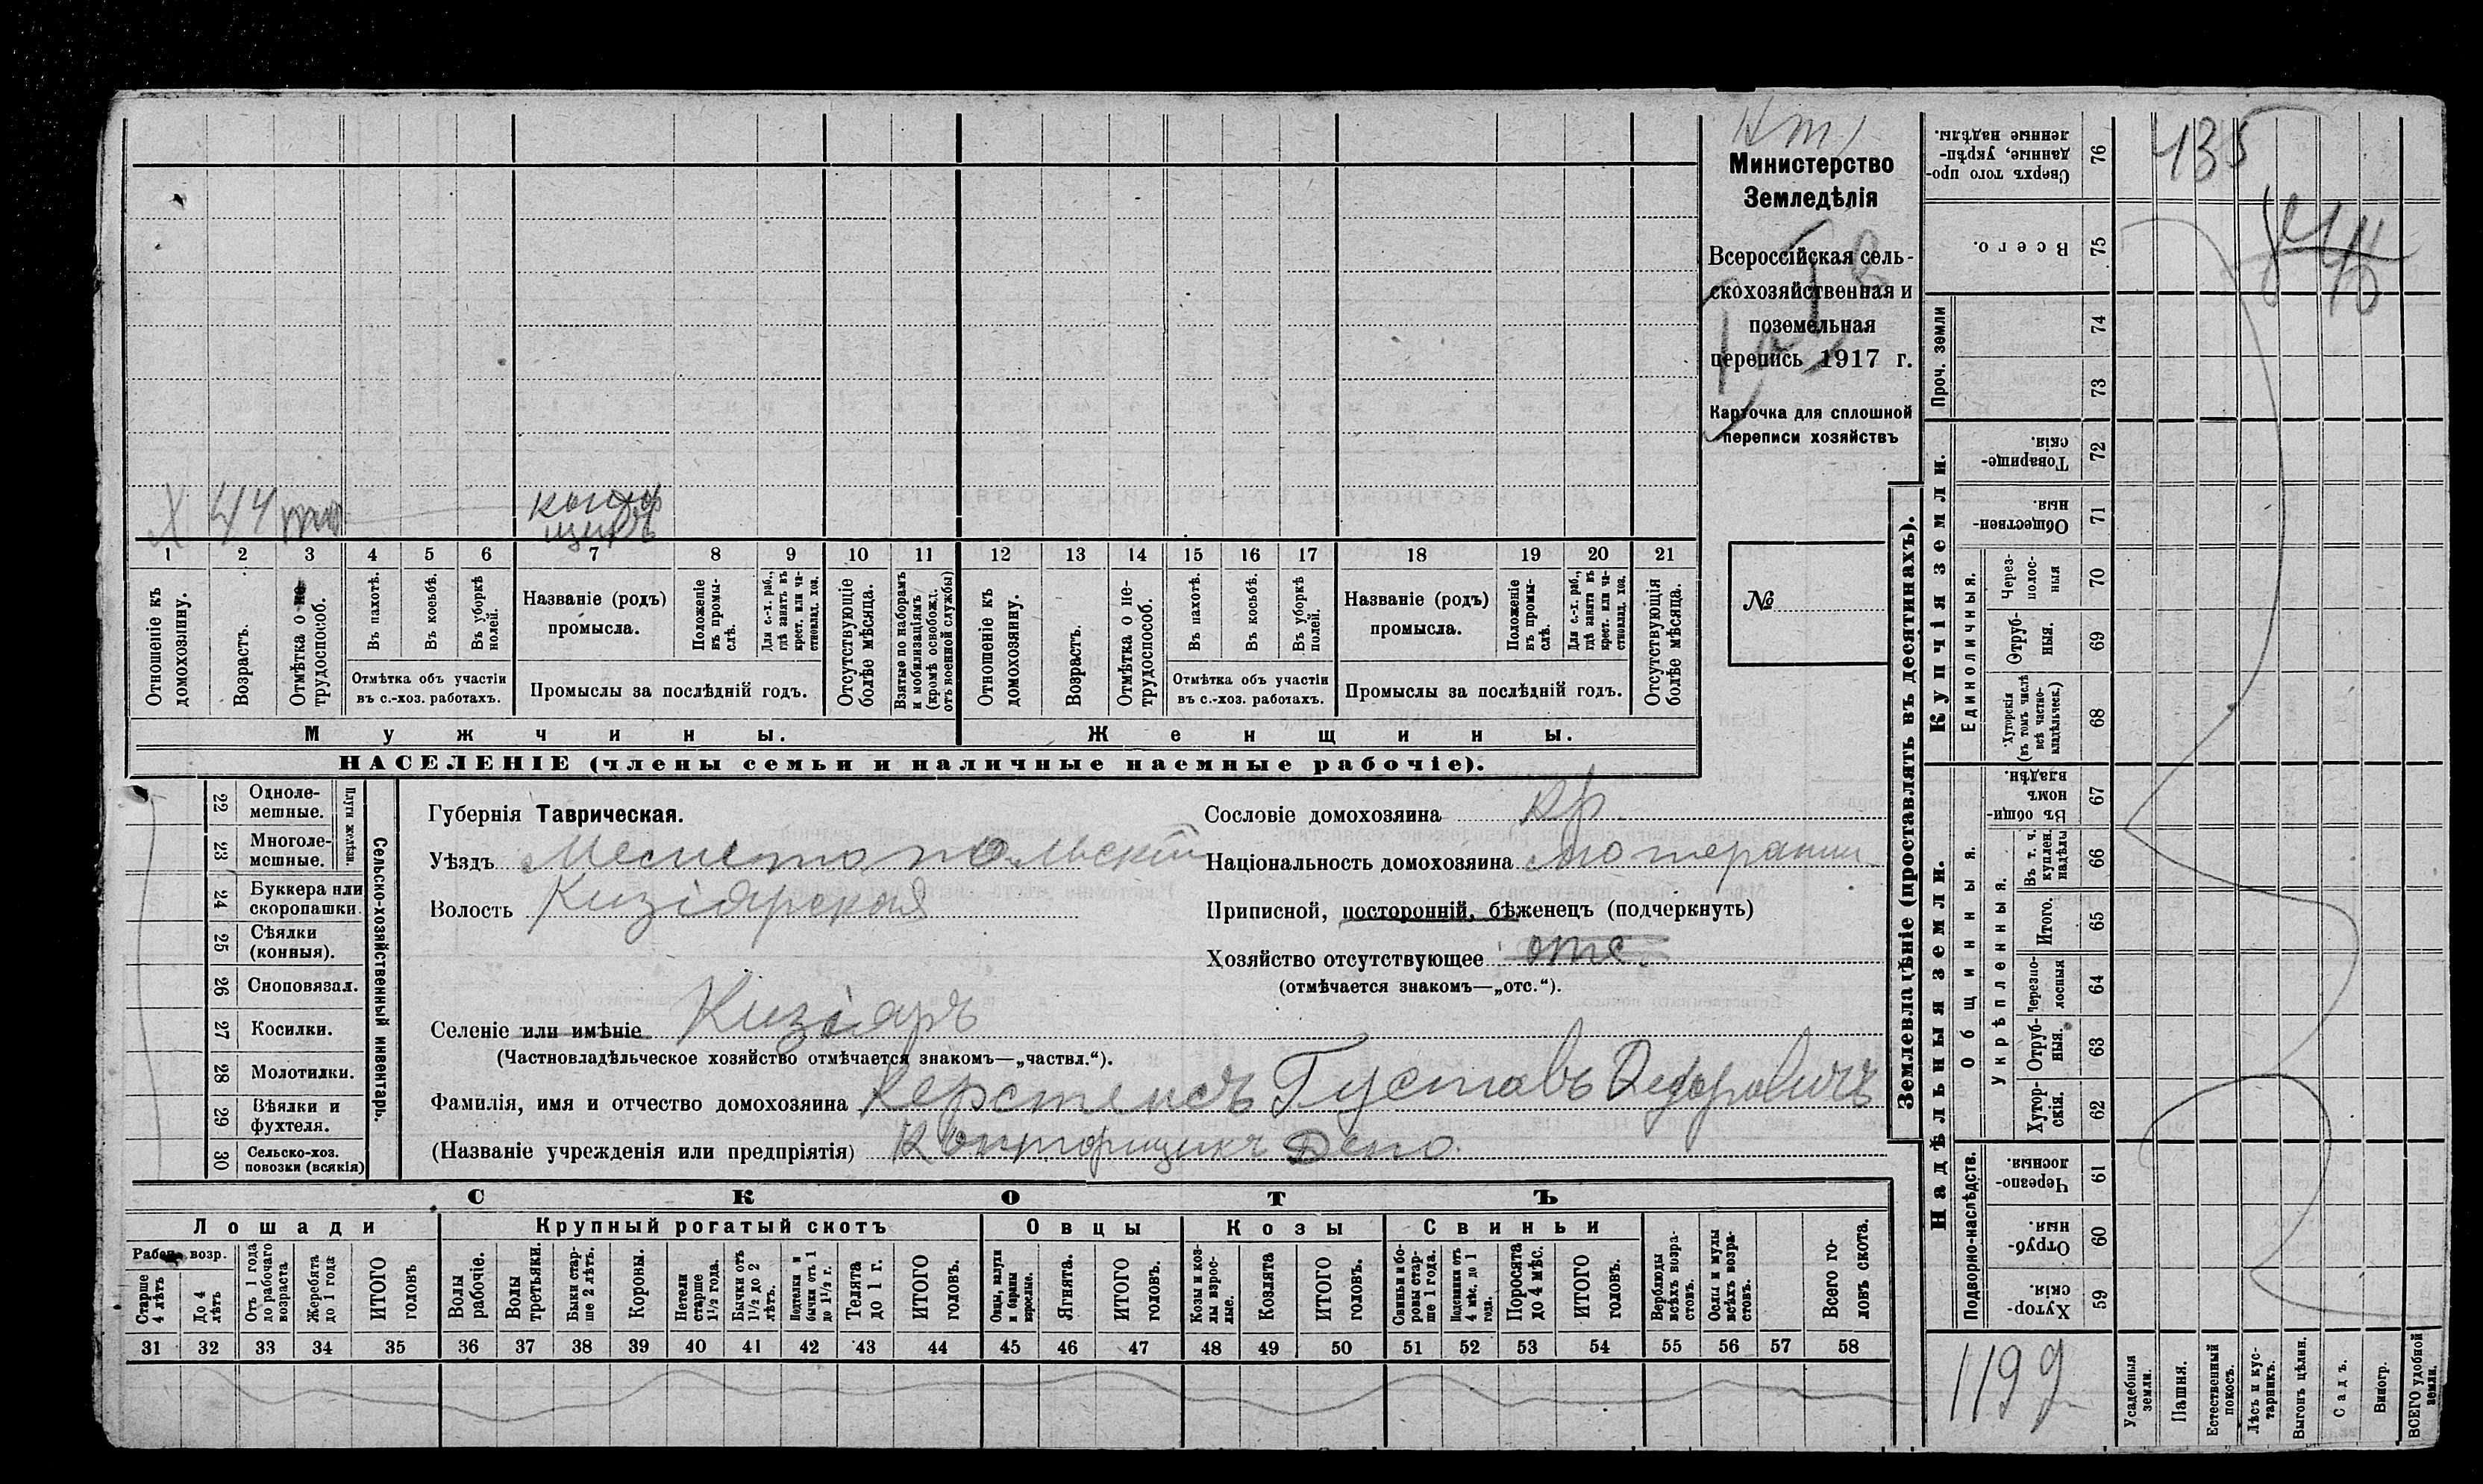 Министерство
Земледѣлія
Всероссійская сель-
скохозяйственная и
поземельная
перепись 1917 г.
Карточка для сплошной
переписи хозяйствъ
№
X 44
1 2 3 4 5 6 7 8 9 10 11 12 13 14 15 16 17 18 19 20 21
Отношеніе къ
домохозяину.
Возрастъ.
Отмѣтка о не
трудоспособ.
Въ пахотѣ.
Въ косьбѣ.
Въ уборкѣ
полей.
Отмѣтка объ участіи
въ с.-хоз. работахъ.
Названіе (родъ)
промысла.
Положеніе
въ промы-
слѣ.
Для с.-х. раб.,
гдѣ занятъ въ
крест. или ча-
стновлад. хоз.
Промыслы за послѣдній годъ.
Отсутствующіе
болѣе мѣсяца.
Взятые по наборамъ
и мобилизаціямъ
(кромѣ освобожд.
отъ военной службы)
Отношеніе къ
домохозяину.
Возрастъ.
Отмѣтка о не-
трудоспособ.
Въ пахотѣ.
Въ косьбѣ.
Въ уборкѣ
полей.
Отмѣтка объ участіи
въ с.-хоз. работахъ.
Названіе (родъ)
промысла.
Положеніе
въ промы-
слѣ.
Для с.-х. раб.,
гдѣ занята въ
крест. или ча-
стновлад. хоз.
Промыслы за послѣдній годъ.
Отсутствующія
болѣе мѣсяца.
Мужчины.
Женщины.
НАСЕЛЕНІЕ (члены семьи и наличные наемные рабочіе).
22 Одноле-
мешные.
23 Многоле-
мешные.
Плуги желѣзн.
24 Буккера или
скоропашки.
25 Сѣялки
(конныя).
26 Сноповязал.
27 Косилки.
28 Молотилки.
29 Вѣялки и
фухтеля.
30 Сельско-хоз.
повозки (всякія)
Сельско-хозяйственный инвентарь.
Губернія Таврическая.
Уѣздъ Мелитопольскій
Волость Кизіярская
Селеніе или имѣніе Кизіяръ
(Частновладѣльческое хозяйство отмѣчается знакомъ—„частвл.“).
Сословіе домохозяина кр.
Національность домохозяина
Приписной, посторонній, бѣженецъ (подчеркнуть)
Хозяйство отсутствующее отс.
(отмѣчается знакомъ—„отс.“).
Фамилія, имя и отчество домохозяина Керстенсъ Густавъ Федоровичъ
(Названіе учрежденія или предпріятія) Конторщикъ Депо.
СКОТЪ
Лошади
Рабоч. возр.
Старше
4 лѣтъ
До 4
лѣтъ
Отъ 1 года
до рабочаго
возраста
Жеребята
до 1 года
ИТОГО
головъ
Крупный рогатый скотъ
Волы
рабочіе.
Волы
третьяки.
Быки стар-
ше 2 лѣтъ.
Коровы.
Нетели
старше
1½ года.
Бычки отъ
1½ до 2
лѣтъ.
Подтелки и
бычки отъ 1
до 1½ г.
Телята
до 1 г.
ИТОГО
головъ.
Овцы
Овцы, валухи
и бараны
взрослые.
Ягнята.
ИТОГО
головъ.
Козы
Козы и коз-
лы взрос-
лые.
Козлята
ИТОГО
головъ.
Свиньи
Свиньи и бо-
ровы стар-
ше 1 года.
Подсвинки отъ
4 мѣс. до 1
года.
Поросята
до 4 мѣс.
ИТОГО
головъ.
Верблюды
всѣхъ возра-
стовъ.
Ослы и мулы
всѣхъ возра-
стовъ.
Всего го-
ловъ скота.
31 32 33 34 35 36 37 38 39 40 41 42 43 44 45 46 47 48 49 50 51 52 53 54 55 56 57 58
Землевладѣніе (проставлять въ десятинахъ).
Надѣльныя земли.
Подворно-наслѣдств.
Хутор-
скія. 59
Отруб-
ныя. 60
Черезпо-
лосныя. 61
Общинныя.
Укрѣпленныя.
Хутор-
скія. 62
Отруб-
ныя. 63
Черезпо-
лосныя 64
Итого. 65
Въ т. ч.
куплен.
надѣлы 66
Въ общи-
номъ
владѣн. 67
Купчія земли.
Единоличныя.
Хуторскія
(въ томъ числѣ
всѣ частно-
владѣльческ.) 68
Отруб-
ныя. 69
Через-
полос-
ныя 70
Обществен-
ныя. 71
Товарище-
скія. 72
Проч. земли
73
74
Всего. 75
Сверхъ того про-
данные, укрѣп-
ленные надѣлы. 76
135
1199
Усадебныя
земли.
Пашня.
Естественный
покосъ.
Лѣсъ и кус-
тарникъ.
Выгонъ цѣлин.
Садъ.
Виногр.
ВСЕГО удобной
земли.